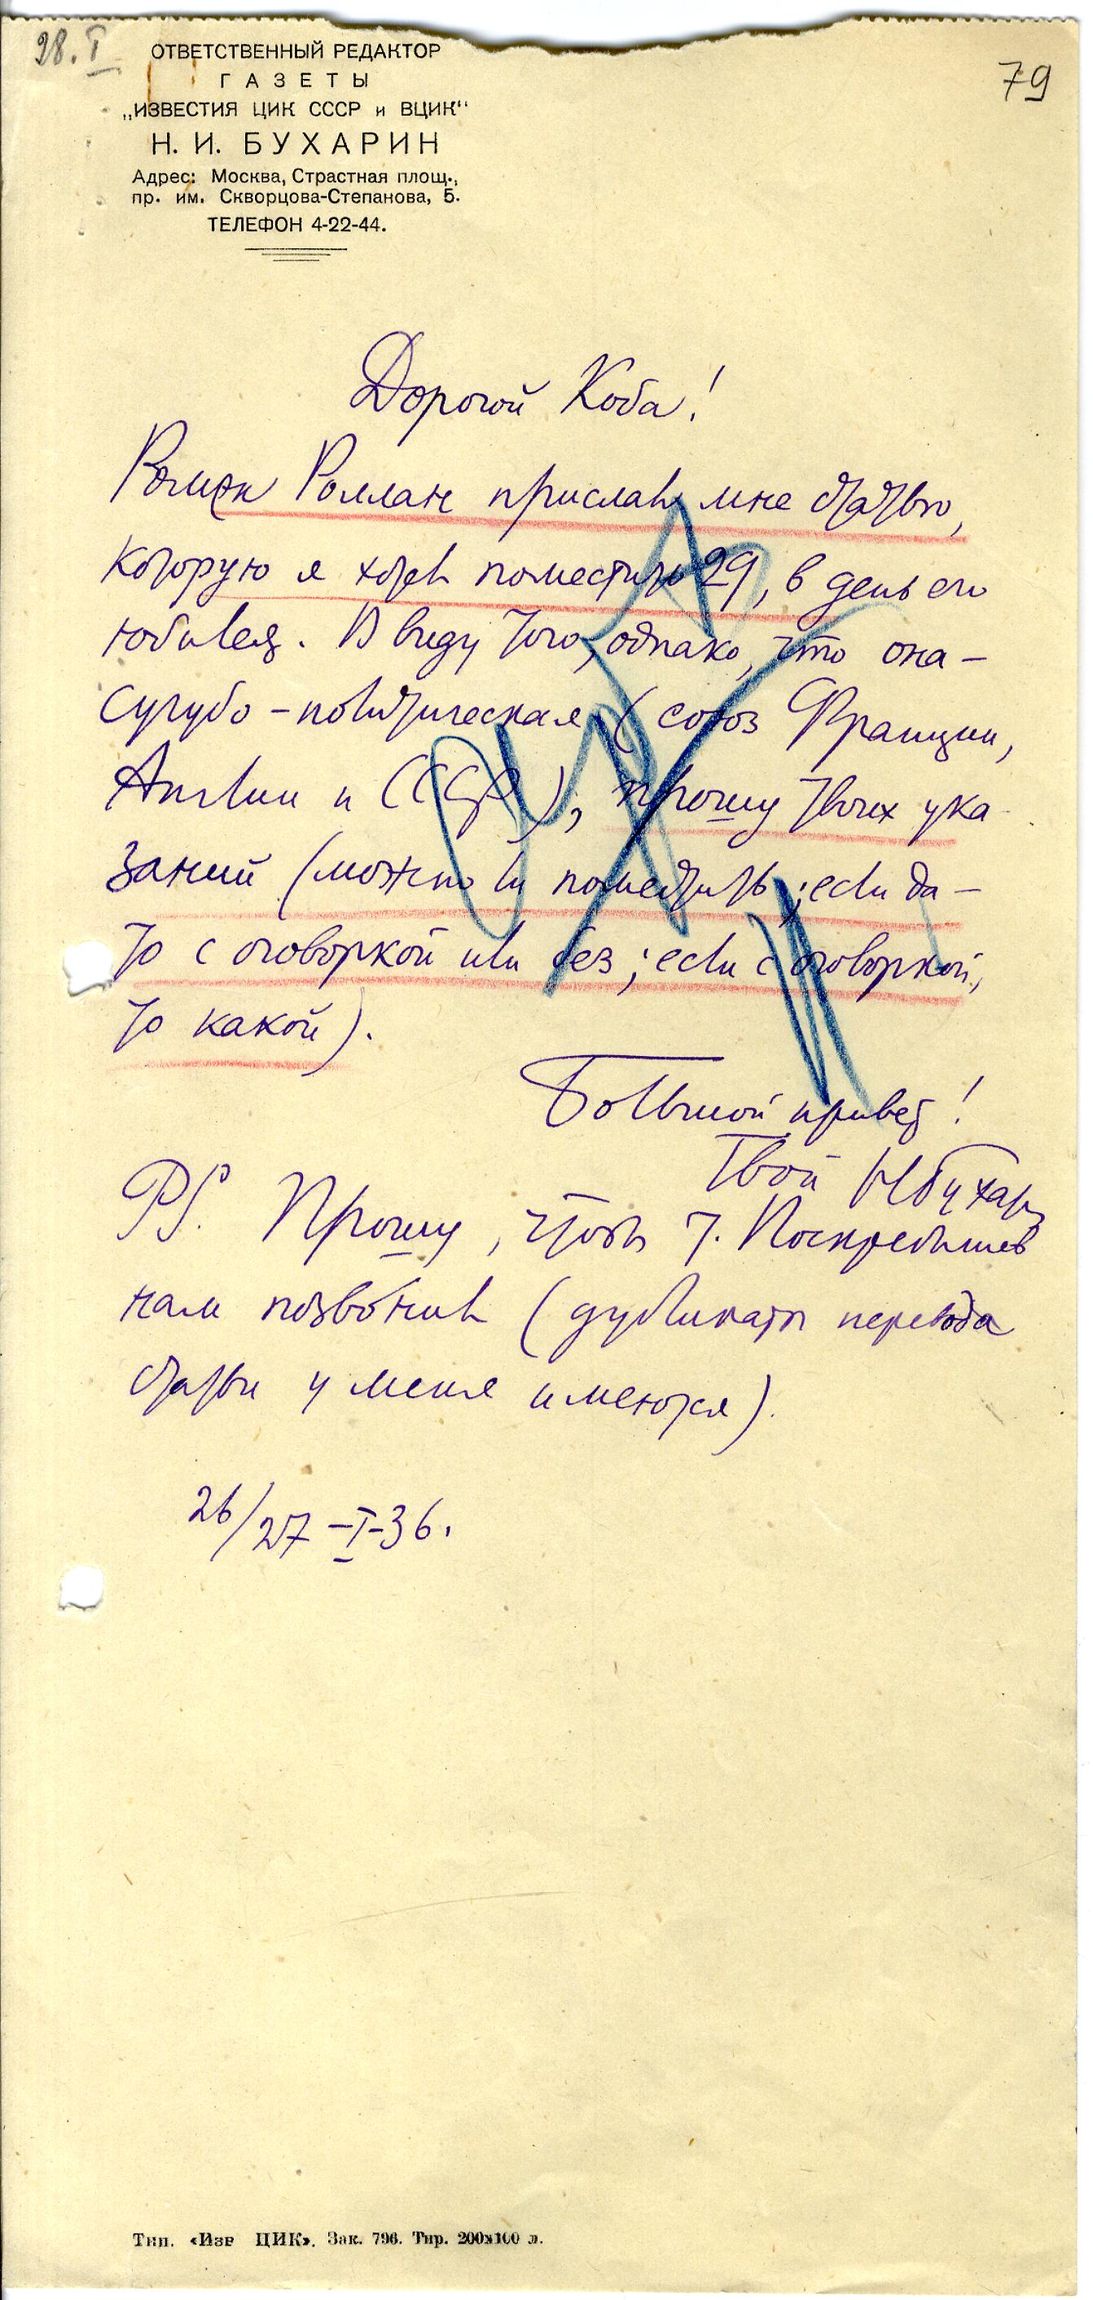 28.I
79
ОТВЕТСТВЕННЫЙ РЕДАКТОР
ГАЗЕТЫ
„ИЗВЕСТИЯ ЦИК СССР и ВЦИК“
Н. И. БУХАРИН
Адрес: Москва, Страстная площ.,
пр. им. Скворцова-Степанова, 5.
ТЕЛЕФОН 4-22-44.
Дорогой Коба!
Ромэн Роллан прислал мне статью,
которую я хотел поместить 29, в день его
юбилея. В виду того, однако, что она –
сугубо-политическая (союз Франции,
Англии и СССР), прошу твоих ука-
заний (можно ли поместить; если да –
то с оговоркой или без; если с оговоркой,
то какой).
Большой привет!
Твой НБухарин
PS. Прошу, чтобы т. Поскребышев
нам позвонил (дубликаты перевода
статьи у меня имеются).
26/27-I-36.
Тип. «Изв ЦИК». Зак. 796. Тир. 200х100 л.